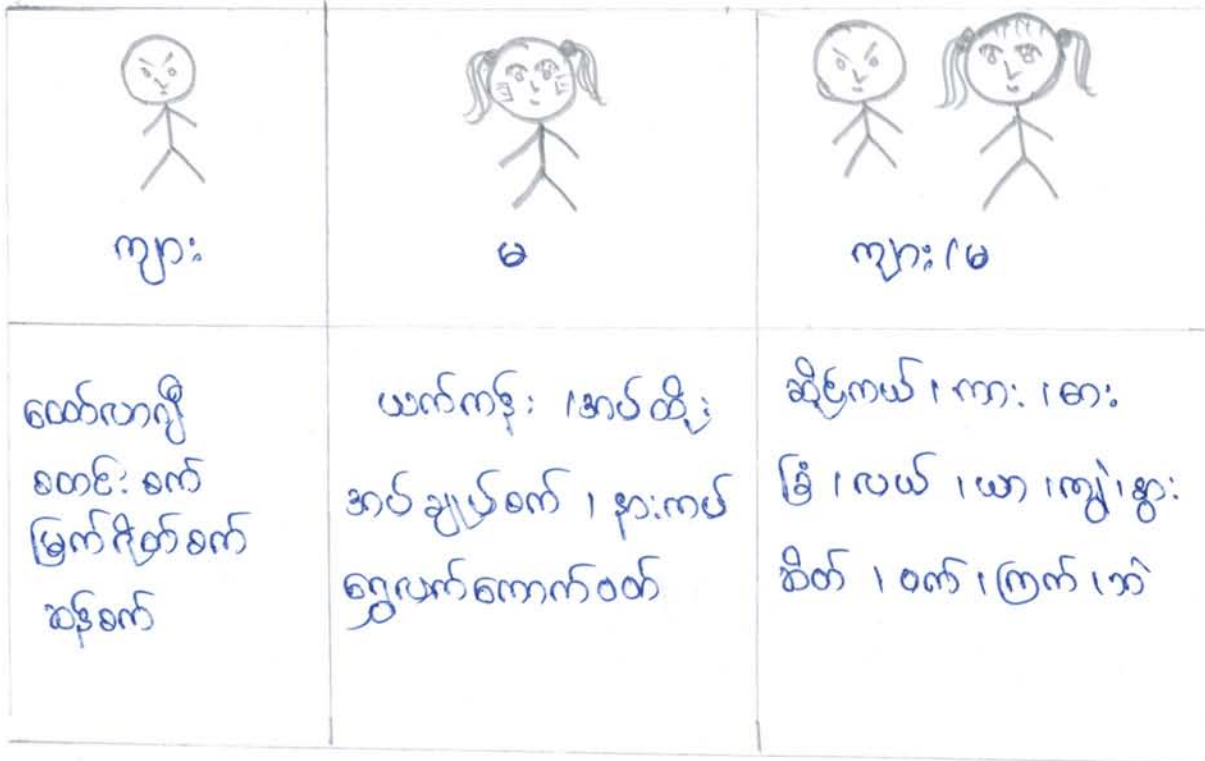 ကျား
မ
ကျား/မ
ထော်လာဂျီ
စတင်းစက်
မြက်ရိတ်စက်
ဆန်စက်
ယက်ကန်း ၊အပ်ထိုး
အပ်ချုပ်စက် ၊ နားကပ်
ရွှေလက်ကောက်ဝတ်
ဆိုင်ကယ်၊ ကား ၊ဓား
ခြံ ၊လယ် ၊ယာ ၊ကျွဲ၊နွား
ဆိတ် ၊ ဝက် ၊ကြက် ၊ဘဲ